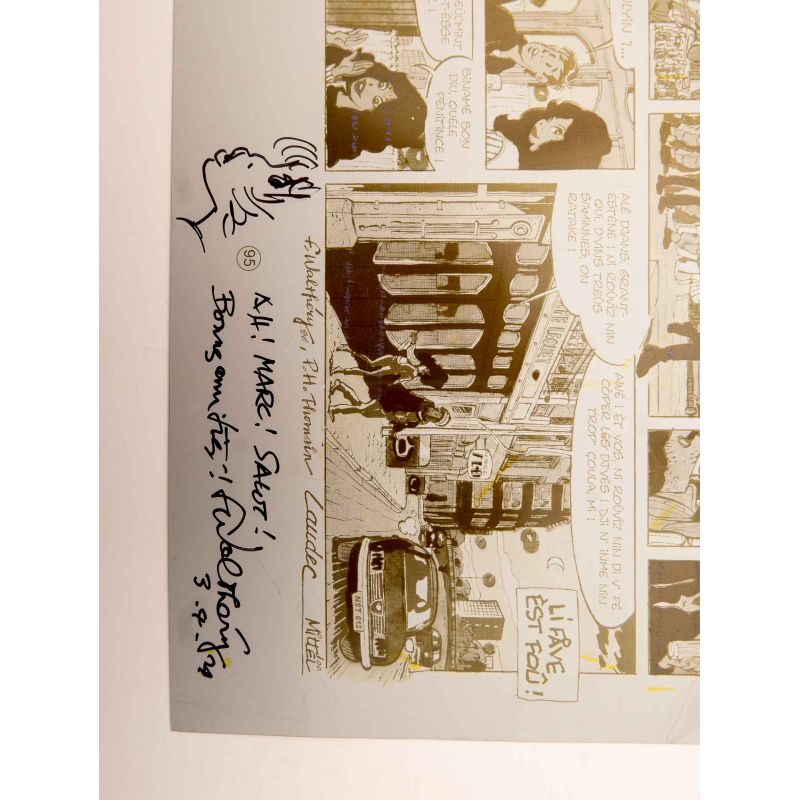 ULYIN ?...
EULMINT
T-ESSE
BINAMÉ BON
DIU, QUÉLE
PÉNITINCE !
ALÉ DJANS, GRANT-
ESTENÉ ! NI ROÛVIZ NIN
QUI, D'VINS TREÛS
SAMINNES, ON
RATAKE !
AWÈ ! ÈT VOS, NI ROÛVIZ NIN DI V' FÉ
CÔPER LES DJVÈS : DJI N' INME NIN
TROP' ÇOULA, MI !
LI FÂVE
ÈST FOÛ !
NST 612
F. Walthéry 00, P.H. Thomsin Laudec Mittéï
95
AH! MARC! SALUT!
Bonnes amitiés -! F Walthéry